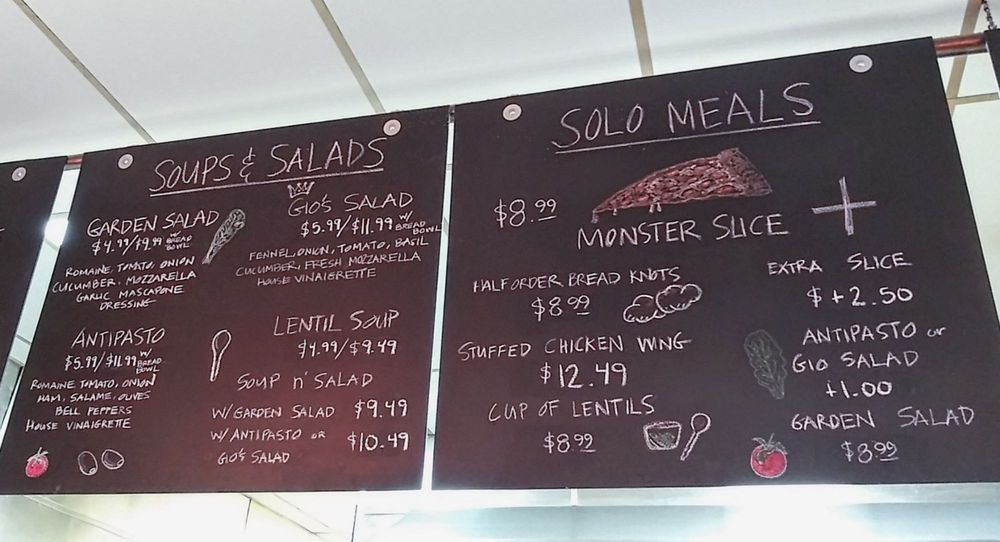 SOUPS & SALADS
GARDEN SALAD
$4.99/$9.99 W/ BREAD BOWL
ROMAINE, TOMATO, ONION
CUCUMBER, MOZZARELLA
GARLIC MASCAPONE
DRESSING
ANTIPASTO
$5.99/$11.99 W/ BREAD BOWL
ROMAINE TOMATO, ONION
HAM, SALAME, OLIVES
BELL PEPPERS
HOUSE VINAIGRETTE
GIO'S SALAD
$5.99/$11.99 W/ BREAD BOWL
FENNEL, ONION, TOMATO, BASIL
CUCUMBER, FRESH MOZZARELLA
HOUSE VINAIGRETTE
LENTIL SOUP
$4.99/$9.49
SOUP n' SALAD
W/ GARDEN SALAD $9.49
W/ ANTIPASTO OR $10.49
GIO'S SALAD
SOLO MEALS
$8.99
MONSTER SLICE
+
HALF ORDER BREAD KNOTS
$8.99
STUFFED CHICKEN WING
$12.49
CUP OF LENTILS
$8.99
EXTRA SLICE
$+2.50
ANTIPASTO or
GIO SALAD
+1.00
GARDEN SALAD
$8.99